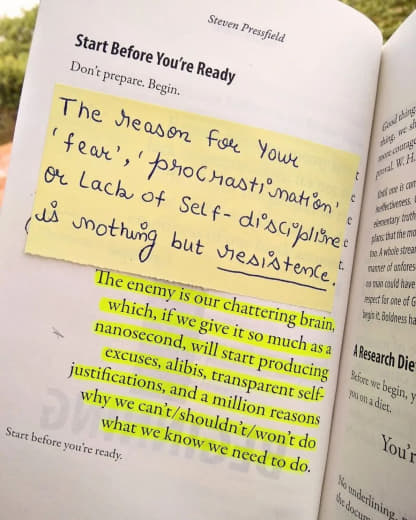 Steven Pressfield
Start Before You're Ready
Don't prepare. Begin.
The reason for your
'fear', 'procrastination'
or Lack of Self-discipline
is nothing but resistence.
The enemy is our chattering brain,
which, if we give it so much as a
nanosecond, will start producing
excuses, alibis, transparent self-
justifications, and a million reasons
why we can't/shouldn't/won't do
what we know we need to do.
Start before you're ready.
Good thing
thing, we sh
more courage
proval. W. H.
Until one is con
ineffectiveness. C
elementary truth
plans: that the mo
too. A whole strean
manner of unfores
no man could have
respect for one of G
begin it. Boldness ha
A Research Die
Before we begin, y
you on a diet.
You'r
No underlining,
the docum